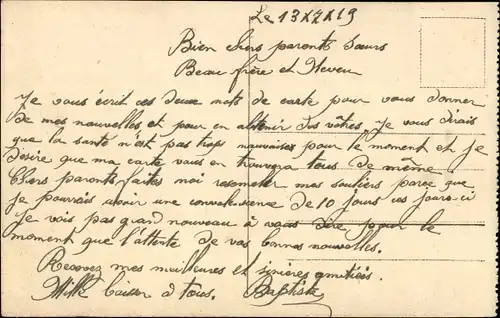 Le 13 X 19
Bien chers parents sœurs
Beau frère et Neveu
Je vous écrit ces deux mots de carte pour vous donner
de mes nouvelles et pour en obtenir des vôtres, Je vous dirais
que la santé n'ést pas trop mauvaises pour le moment et je
desire que ma carte vous en trouvera tous de même.
Chers parents faites moi ressemeller mes souliers parce que
je pourrais avoir une convalessence de 10 jours ces jours ci
je vois pas grand nouveau à vous dire pour le
moment que l'attente de vos bonnes nouvelles.
Recevez mes meilleures et sinières amitiés.
Mille baiser a tous. Baptiste